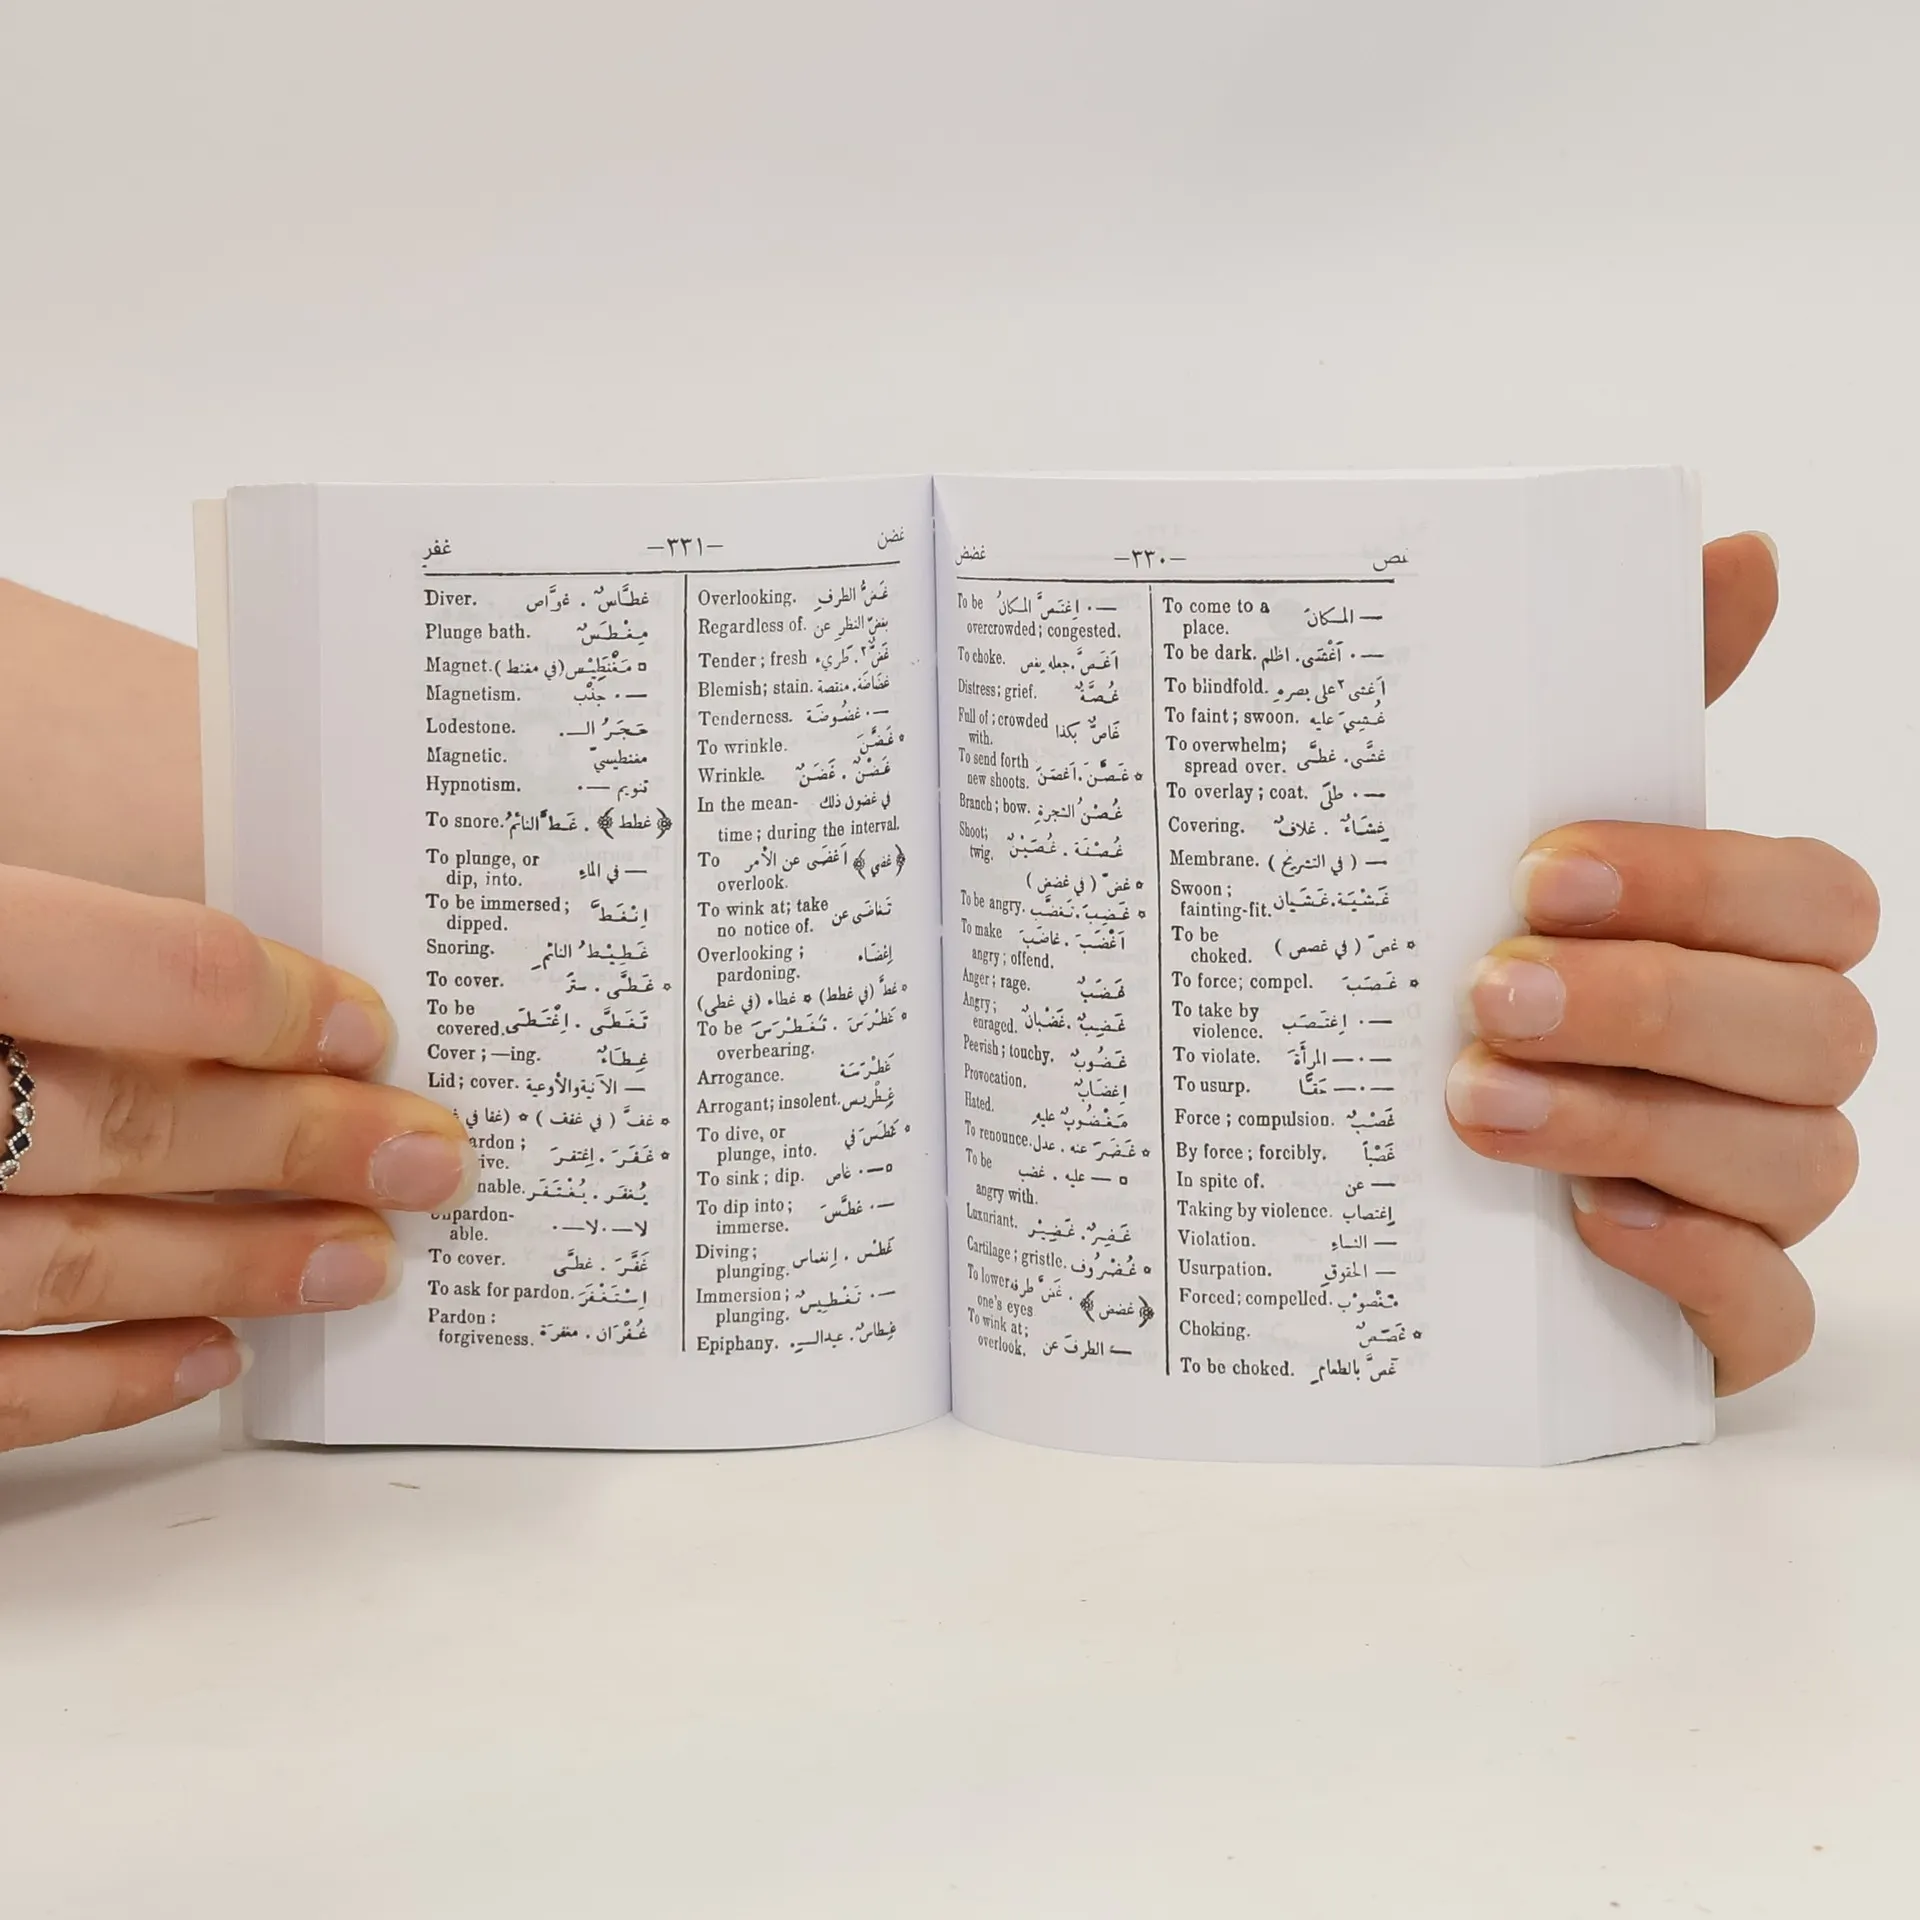 غضض –٣٣٠– غص
To come to a — المكانَ
place.
To be dark. — . أَغْشَى . اظلم
To blindfold. أَغشى ٢ على بصرهِ
To faint; swoon. غُشِيَ عليه
To overwhelm; غشَّى . غطَّى
spread over.
To overlay; coat. — . طلَى
Covering. غِشَاءٌ . غلافٌ
Membrane. — ( في التشريح )
Swoon; غَشْيَة . غَشَيان
fainting-fit.
To be ٥ غصّ ( في غصص )
choked.
To force; compel. ٥ غَصَبَ
To take by — . اِغتَصَب
violence.
To violate. — . — المرأَةَ
To usurp. — . — حَقًّا
Force; compulsion. غَصْبٌ
By force; forcibly. غَصْباً
In spite of. — عن
Taking by violence. إغتصاب
Violation. — النساءِ
Usurpation. — الحقوقِ
Forced; compelled. مَغْصوب
Choking. ٥ غَصَصٌ
To be choked. غَصَّ بالطعامِ
To be — . اِغتَصَّ المكانُ
overcrowded; congested.
To choke. أَغَصَّ . جعله يغص
Distress; grief. غُصَّةٌ
Full of; crowded غَاصٌّ بكذا
with.
To send forth ٥ غَصَّنَ . أَغصَنَ
new shoots.
Branch; bow. غُصْنُ الشجرةِ
Shoot; غُصْنَة . غُصَيْنٌ
twig.
٥ غضّ ( في غضض )
To be angry. ٥ غَضِبَ . تَغَضَّب
To make أَغْضَبَ . غاضَبَ
angry; offend.
Anger; rage. غَضَبٌ
Angry; غَضِبٌ . غَضْبانٌ
enraged.
Peevish; touchy. غَضُوبٌ
Provocation. اِغضَابٌ
Hated. مَغْضُوبٌ عليهِ
To renounce. ٥ غَضَرَ عنه . عدل
To be ٥ — عليه . غضب
angry with.
Luxuriant. غَضِرٌ . غَضِيْر
Cartilage; gristle. ٥ غُضْرُوف
To lower ﴿ غضض ﴾ . غضَّ طرفه
one's eyes
To wink at; — الطرفَ عن
overlook.
غفر –٣٣١– غضن
Overlooking. غَضُّ الطرفِ
Regardless of. بغضّ النظر عن
Tender; fresh غَضٌّ ٢ . طريء
Blemish; stain. غَضَاضَة . منقصة
Tenderness. — . غضُوضَة
To wrinkle. ٥ غَضَّنَ
Wrinkle. غَضْنٌ . غَضَنٌ
In the mean- في غضون ذلك
time; during the interval.
To ﴿ غضي ﴾ أَغضَى عن الأمر
overlook.
To wink at; take تَغاضَى عن
no notice of.
Overlooking; إغضَاء
pardoning.
٥ غطَّ (في غطط) ٥ غطاء (في غطى)
To be ٥ غَطْرَسَ . تَغَطْرَسَ
overbearing.
Arrogance. غَطْرَسَة
Arrogant; insolent. غِطْرِيس
To dive, or ٥ غَطَسَ في
plunge, into.
To sink; dip. ٥ — . غاص
To dip into; — . غطَّسَ
immerse.
Diving; غَطْس . اِنغماس
plunging.
Immersion; — . تَغْطِيسٌ
plunging.
Epiphany. غِطاسٌ . عيدالـــ .
Diver. غطَّاسٌ . غوَّاص
Plunge bath. مِغْطَسٌ
Magnet. ٥ مَغْنَطِيْس (في مغنط)
Magnetism. — . جذْب
Lodestone. حَجَرُ الـــ .
Magnetic. مغنطيسيّ
Hypnotism. — . تنويم
To snore. ﴿ غطط ﴾ . غَطَّ النائمُ
To plunge, or — في الماءِ
dip, into.
To be immersed; اِنْغَطَّ
dipped.
Snoring. غَطِيْطُ النائمِ
To cover. ٥ غَطَّى . سترَ
To be تَغَطَّى . اِغْتَطَى
covered.
Cover; —ing. غِطَاءٌ
Lid; cover. — الآنية والأوعية
٥ غفَّ ( في غفف ) ٥ (غفا في
ardon; ٥ غَفَرَ . اِغتفرَ
ive.
nable. يُغفَر . يُغْتَفَر
Unpardon- لا — . لا — .
able.
To cover. غَفَّرَ . غطَّى
To ask for pardon. اِسْتَغْفَرَ
Pardon: غُفْرَان . مغفرَة
forgiveness.